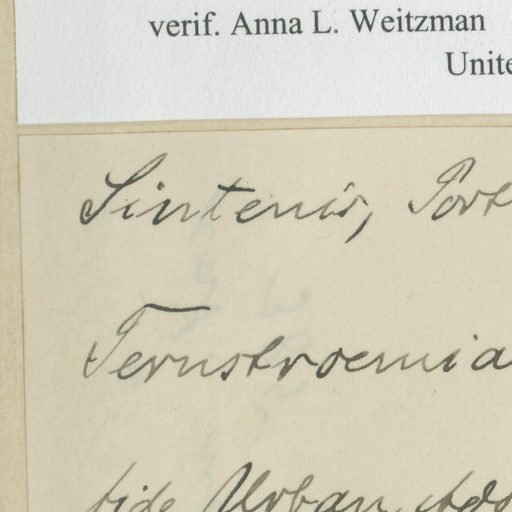 verif. Anna L. Weitzman
Unite
Sintenis, Port
Ternstroemia
fide Urban